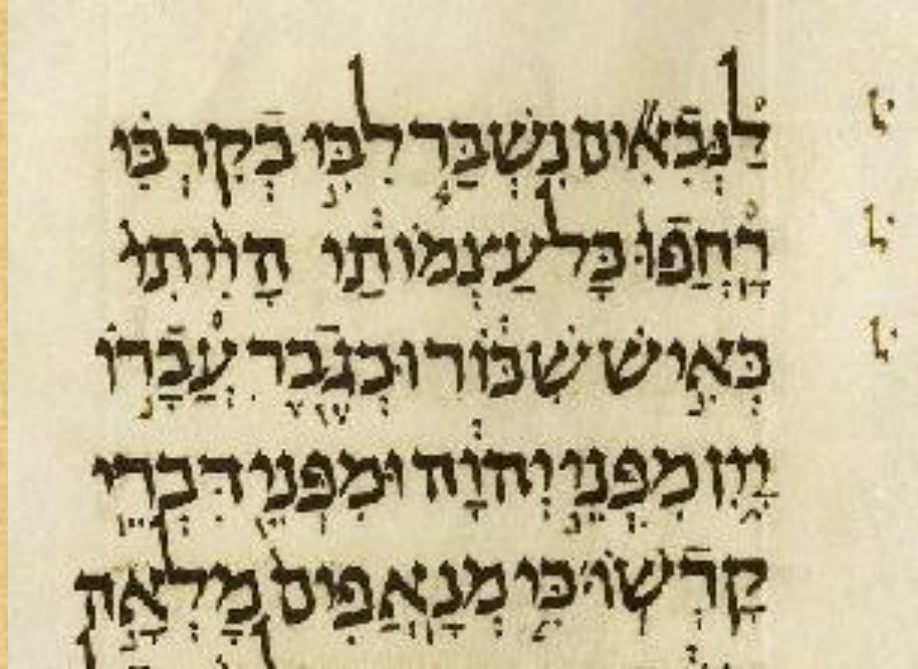 לַנְּבִאִ֞ים נִשְׁבַּ֧ר לִבִּ֣י בְקִרְבִּ֗י
רָֽחֲפוּ֙ כָּל־עַצְמוֹתַ֔י הָיִ֙יתִי֙
כְּאִ֣ישׁ שִׁכּ֔וֹר וּכְגֶ֖בֶר עֲבָ֣רוֹ
יָ֑יִן מִפְּנֵ֣י יְהוָ֔ה וּמִפְּנֵ֖י דִּבְרֵ֥י
קָדְשֽׁוֹ׃ כִּ֤י מְנָֽאֲפִים֙ מָלְאָ֣ה